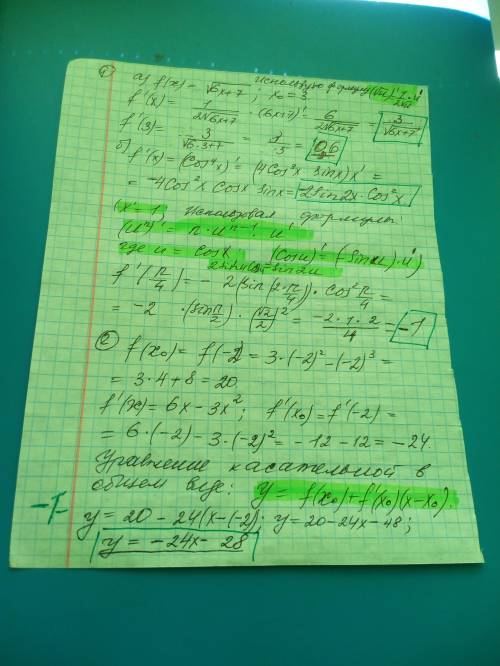 ① а) f(x) = √6x+7 ; x₀ = 3 Используя формулу (√u)' = 1·u'/2√u
f'(x) = 1/2√6x+7 · (6x+7)' = 6/2√6x+7 = 3/√6x+7
f'(3) = 3/√6·3+7 = 3/5 = 0,6
б) f'(x) = (Cos⁴x)' = (4Cos³x · sinx)x' =
= -4Cos²x Cosx sinx = -2Sin2x · Cos²x
(x' = 1) Используя формулы
(uⁿ)' = n · uⁿ⁻¹ · u'
где u = cosx (Cosu)' = (-Sinu)·u')
f'(π/4) = - 2(Sin(2·π/4)) · Cos²π/4 =
= -2 · (Sinπ/2) · (√2/2)² = -2·1·2/4 = -1
② f(x₀) = f(-2) = 3·(-2)² - (-2)³ =
= 3·4+8 = 20
f'(x) = 6x - 3x² ; f'(x₀) = f'(-2) =
= 6·(-2) - 3·(-2)² = -12 - 12 = -24.
Уравнение касательной в
общем виде: y = f(x₀) + f'(x₀)(x-x₀).
y = 20 - 24(x-(-2)) ; y = 20 - 24x - 48 ;
y = -24x - 28
-1-